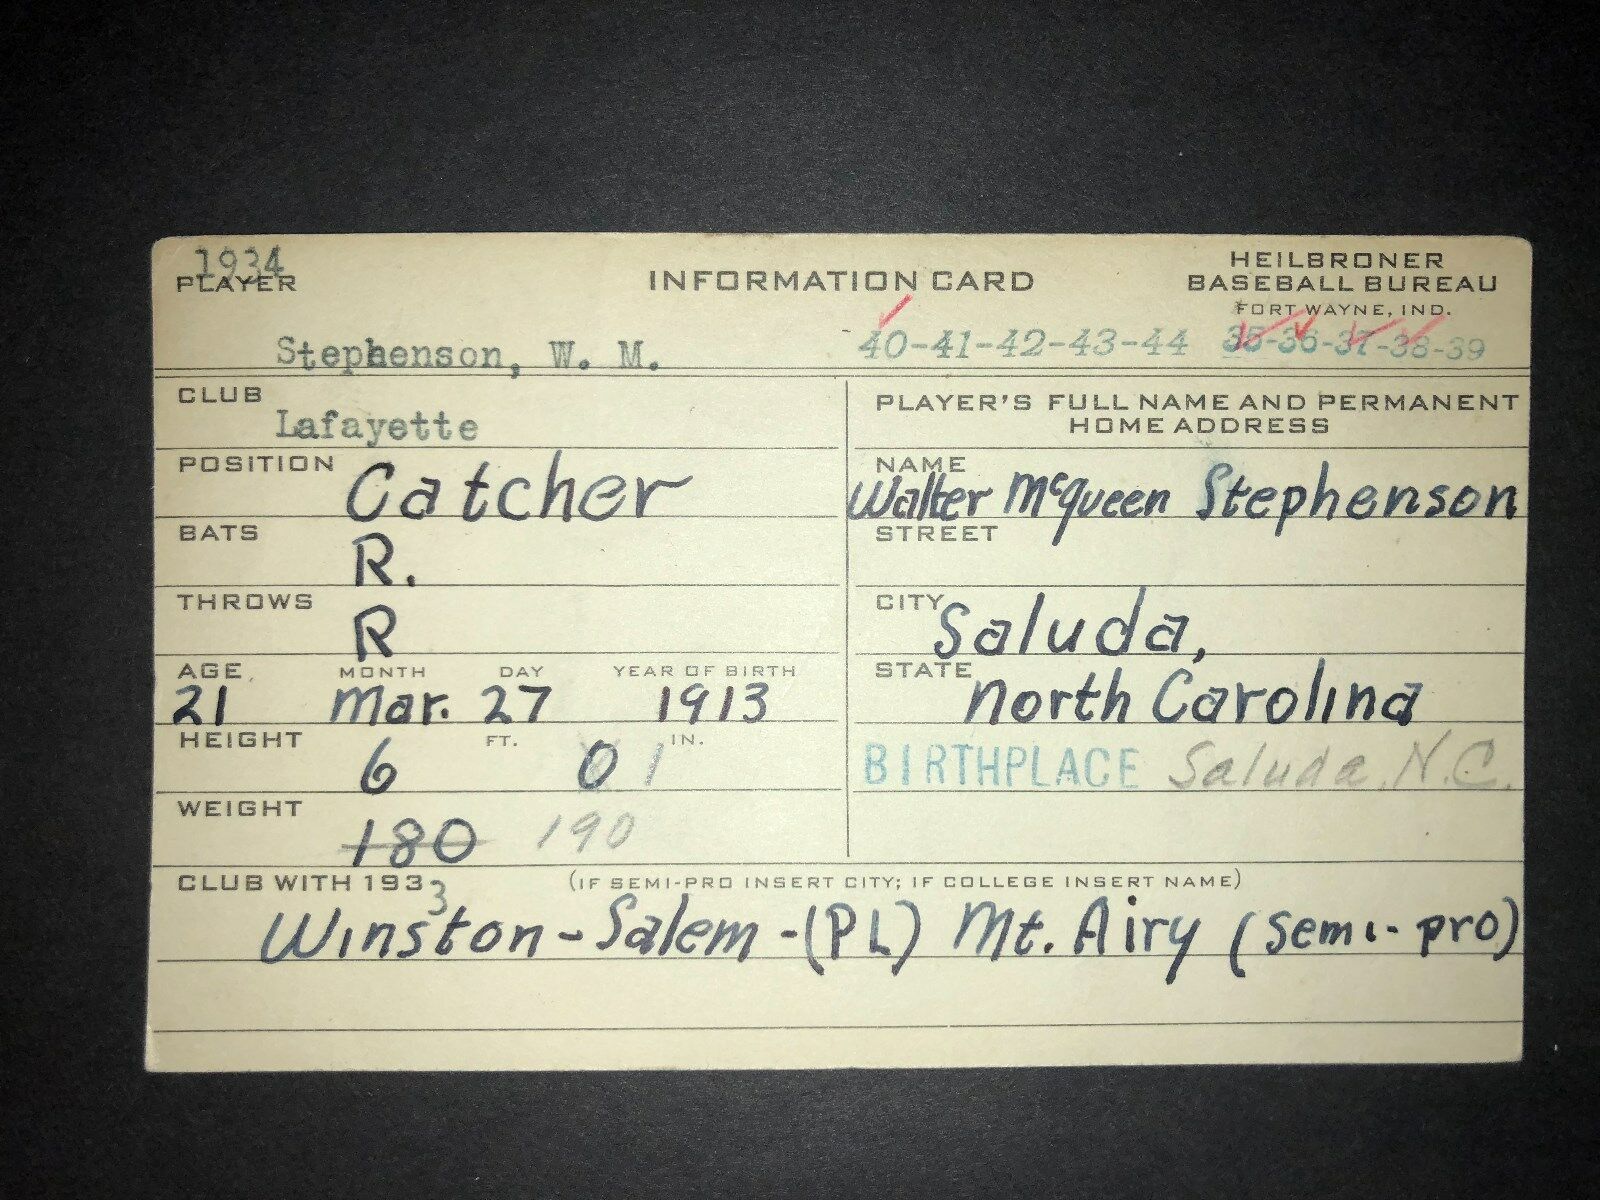 1934
PLAYER
INFORMATION CARD
HEILBRONER
BASEBALL BUREAU
FORT WAYNE, IND.
Stephenson, W. M.
40-41-42-43-44 35-36-37-38-39
CLUB
Lafayette
PLAYER'S FULL NAME AND PERMANENT
HOME ADDRESS
POSITION Catcher
NAME
Walter McQueen Stephenson
BATS R.
STREET
THROWS R
CITY Saluda,
AGE MONTH DAY YEAR OF BIRTH
21 Mar. 27 1913
STATE North Carolina
HEIGHT FT. IN.
6 0 1
BIRTHPLACE Saluda, N.C.
WEIGHT
180 190
CLUB WITH 1933 (IF SEMI-PRO INSERT CITY; IF COLLEGE INSERT NAME)
Winston-Salem-(PL) Mt. Airy (semi-pro)